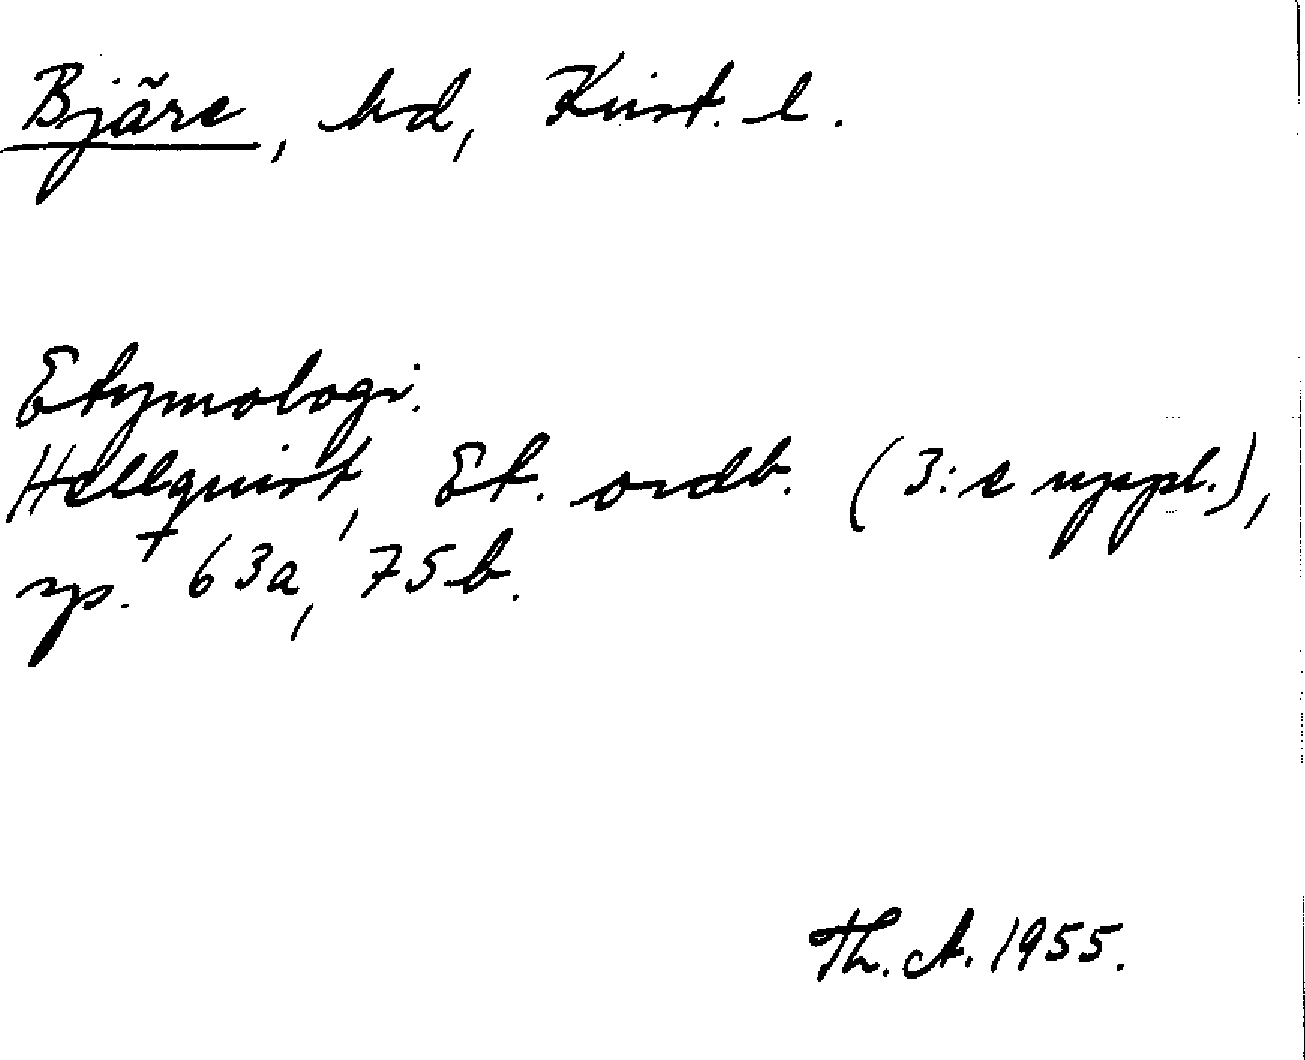 Bjäre, hd, Krist. l.
Etymologi.
Hellquist, Et. ordb. (3:e uppl.),
sp. 63a, 75b.
Th. A. 1955.